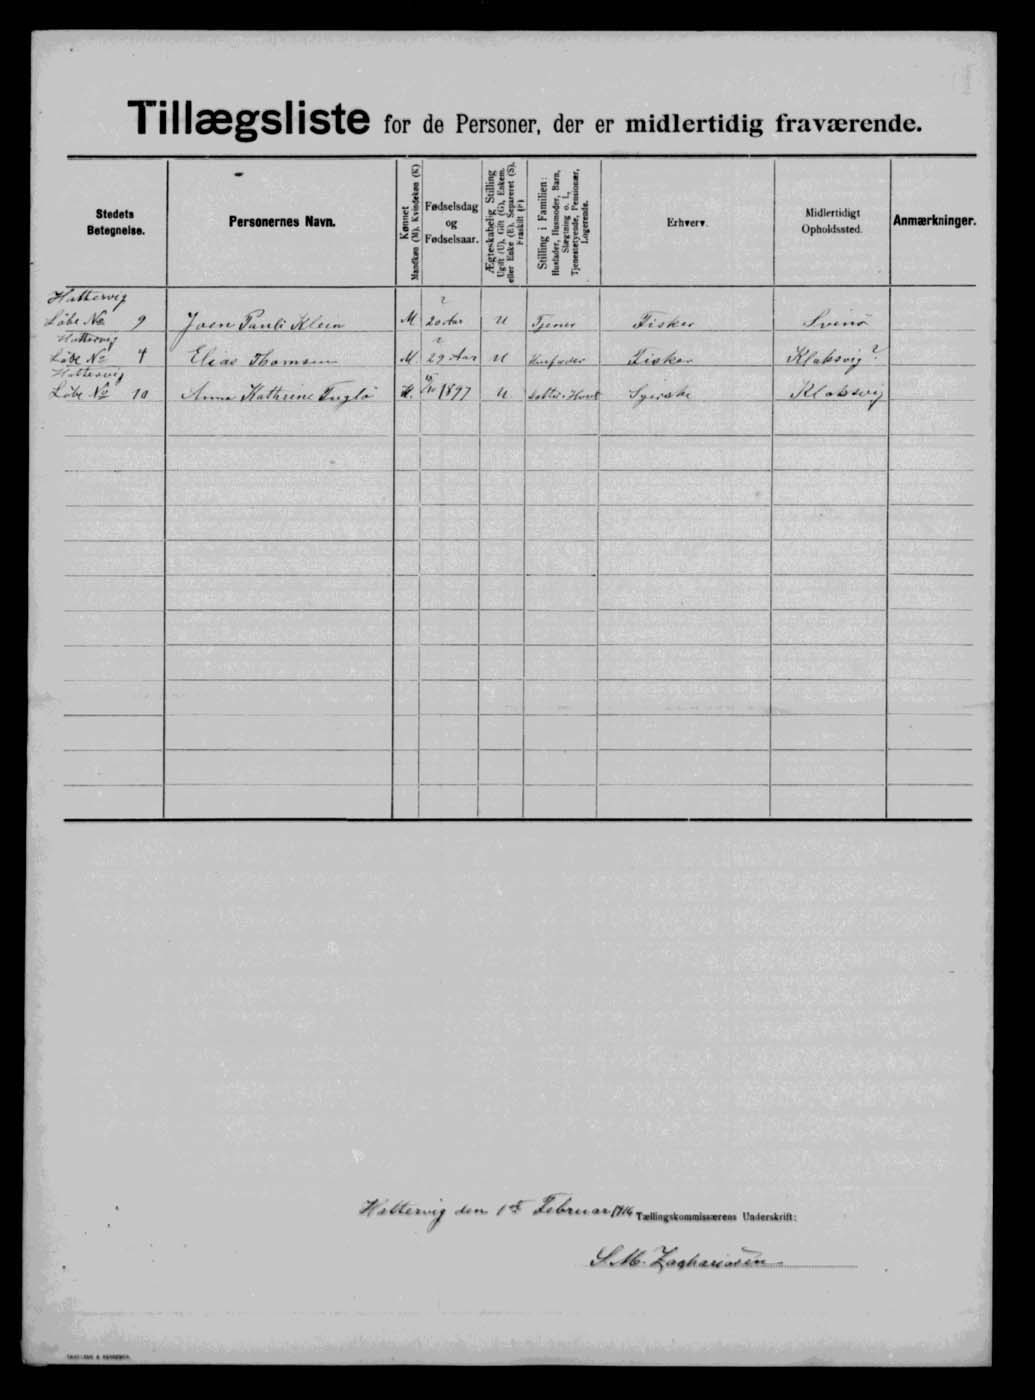 Tillægsliste for de Personer, der er midlertidig fraværende.
Stedets Betegnelse.
Personernes Navn.
Kønnet
Mandkøn (M). Kvindekøn (K)
Fødselsdag og Fødselsaar.
Ægteskabelig Stilling
Ugift (U), Gift (G), Enkem. eller Enke (E), Separeret (S), Fraskilt (F)
Stilling i Familien:
Husfader, Husmoder, Barn, Slægtning o. l., Tjenestetyende, Pensionær, Logerende.
Erhverv.
Midlertidigt Opholdssted.
Anmærkninger.
Hattervig
Løbe No 9 Joen Pauli Klein M ? 20 Aar U Tjener Fisker Svinø
Hattervig
Løbe No 4 Elias Thomsen M. ? 29 Aar U Husfader Fisker Klaksvig?
Hattervig
Løbe No 10 Anna Kathrine Fuglø K. 1897 U Datter Syerske Klaksvig
Hattervig den 1st Februar 1916 Tællingskommissærens Underskrift:
S. M. Zachariasen